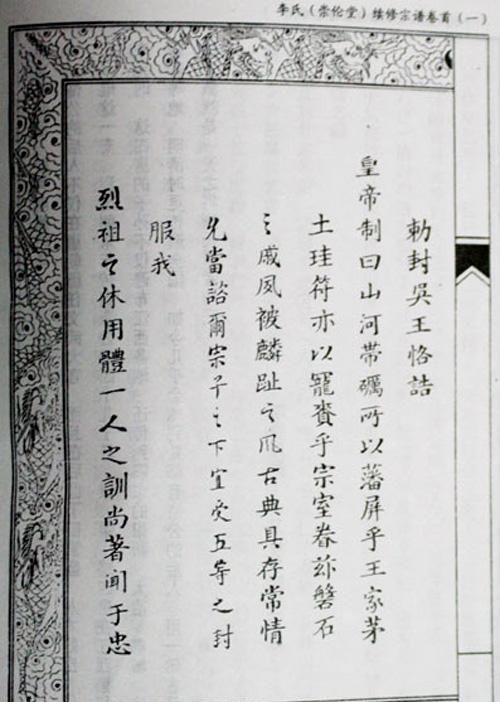 李氏（崇伦堂）续修宗谱卷首（一）
勅封吳王恪誥
皇帝制曰山河帶礪所以藩屏乎王家茅
土珪符亦以寵賚乎宗室眷玆磐石
之戚夙被麟趾之風古典具存常情
允當諮爾宗子之下宜受五等之封
服我
烈祖之休用體一人之訓尚著聞于忠